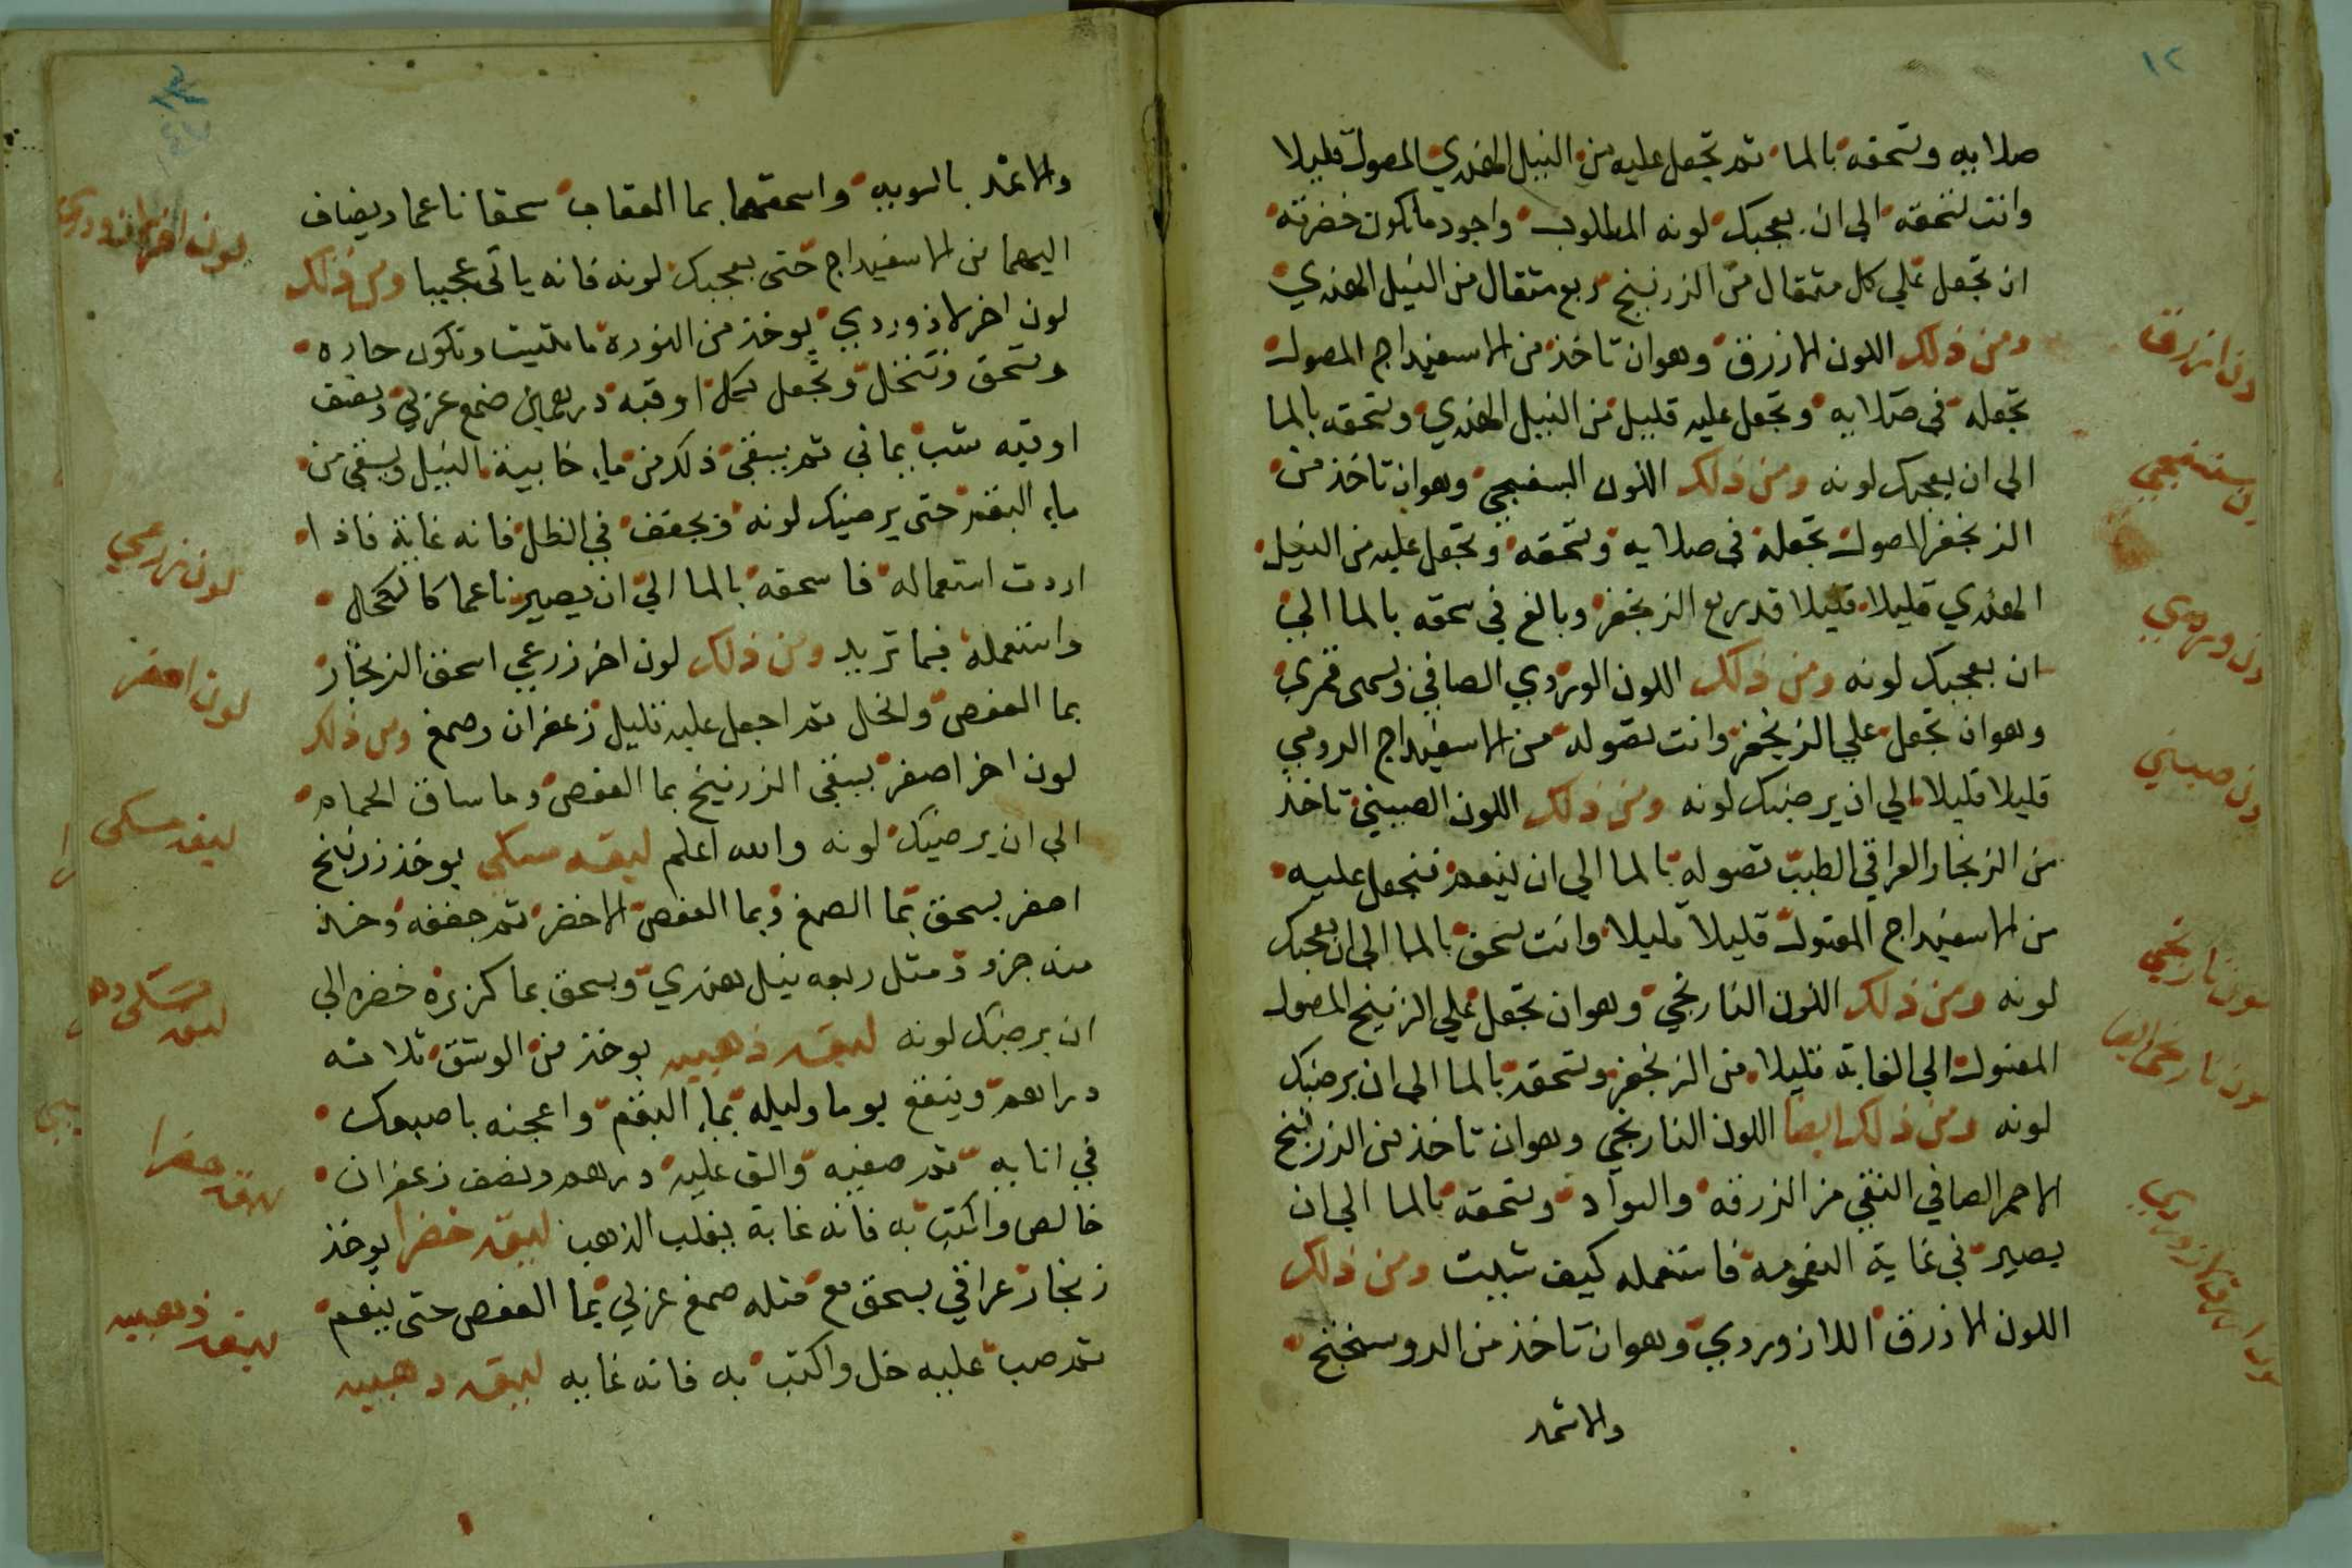 ١٢
صلابه وتسحقه بالما ثم تجعل عليه من النيل الهندي المصول قليلا
وانت تسحقه الي ان يعجبك لونه المطلوب واجود ما تكون خضرته
ان تجعل علي كل مثقال من الزرنيخ ربع مثقال من النيل الهندي
ومن ذلك اللون الازرق وهو ان تاخذ من الاسفيداج المصول
تجعله في صلايه وتجعل عليه قليل من النيل الهندي وتسحقه بالما
الي ان يعجبك لونه ومن ذلك اللون البنفسجي وهو ان تاخذ من
الزنجفر المصول تجعله في صلايه وتسحقه وتجعل عليه من النيل
الهندي قليلا قليلا قدر ربع الزنجفر وبالغ في سحقه بالما الي
ان يعجبك لونه ومن ذلك اللون الوردي الصافي ويسمى قمري
وهو ان تجعل علي الزنجفر وانت تصوله من الاسفيداج الرومي
قليلا قليلا الي ان يرضيك لونه ومن ذلك اللون الصيني تاخذ
من الزنجار العراقي الطيب تصوله بالما الي ان ينعم فتجعل عليه
من الاسفيداج المغسول قليلا قليلا وانت تسحق بالما الي ان يعجبك
لونه ومن ذلك اللون النارنجي وهو ان تجعل علي الزرنيخ المصول
المغسول الي الغاية قليلا من الزنجفر وتسحقه بالما الي ان يرضيك
لونه ومن ذلك ايضا اللون النارنجي وهو ان تاخذ من الزرنيخ
الاحمر الصافي النقي من الزرقه والسواد وتسحقه بالما الي ان
يصير في غاية النعومه فاستعمله كيف شيت ومن ذلك
اللون الازرق اللازوردي وهو ان تاخذ من الدوسنخنج
والاثمد
لون ازرق
وردي
لون صيني
لون نارنجي
لون نارنجي ايضا
والاثمد بالسويه واسحقهما بما العقاب سحقا ناعما ويضاف
اليهما من الاسفيداج حتى يعجبك لونه فانه ياتي عجيبا ومن ذلك
لون اخر لاذوردي يوخذ من النورة ما طفيت وتكون حاره
وتسحق وتنخل وتجعل لكل اوقيه درهمين صمغ عربي ونصف
اوقيه شب يماني ثم يسقى ذلك من ماء خابية النيل ويسقى من
ماء البقم حتى يرضيك لونه ويجفف في الظل فانه غاية فاذا
اردت استعماله فاسحقه بالما الي ان يصير ناعما كالكحل
واستعمله فيما تريد ومن ذلك لون اخر زرعي اسحق الزنجار
بما العفص والخل ثم اجعل عليه قليل زعفران وصمغ ومن ذلك
لون اخر اصفر يسقى الزرنيخ بما العفص وما ساق الحمام
الي ان يرضيك لونه والله اعلم ليقه مسكي يوخذ زرنيخ
اصفر يسحق بما الصمغ وبما العفص الاخضر ثم جففه وخذ
منه جزو ومثل ربعه نيل هندي ويسحق بما كزبرة خضره الي
ان يرضيك لونه ليقه ذهبيه يوخذ من الوشق ثلاثه
دراهم وينقع يوما وليله بماء البقم واعجنه باصبعك
في انا به ثم صفيه والق عليه درهم ونصف زعفران
خالص واكتب به فانه غاية يغلب الذهب ليقه خضرا يوخذ
زنجار عراقي يسحق مع مثله صمغ عربي بما العفص حتى ينعم
ثم صب عليه خل واكتب به فانه غايه ليقه دهبيه
لون زرعي
لون اصفر
ليقه مسكي
ليقه خضرا
ليقه ذهبيه